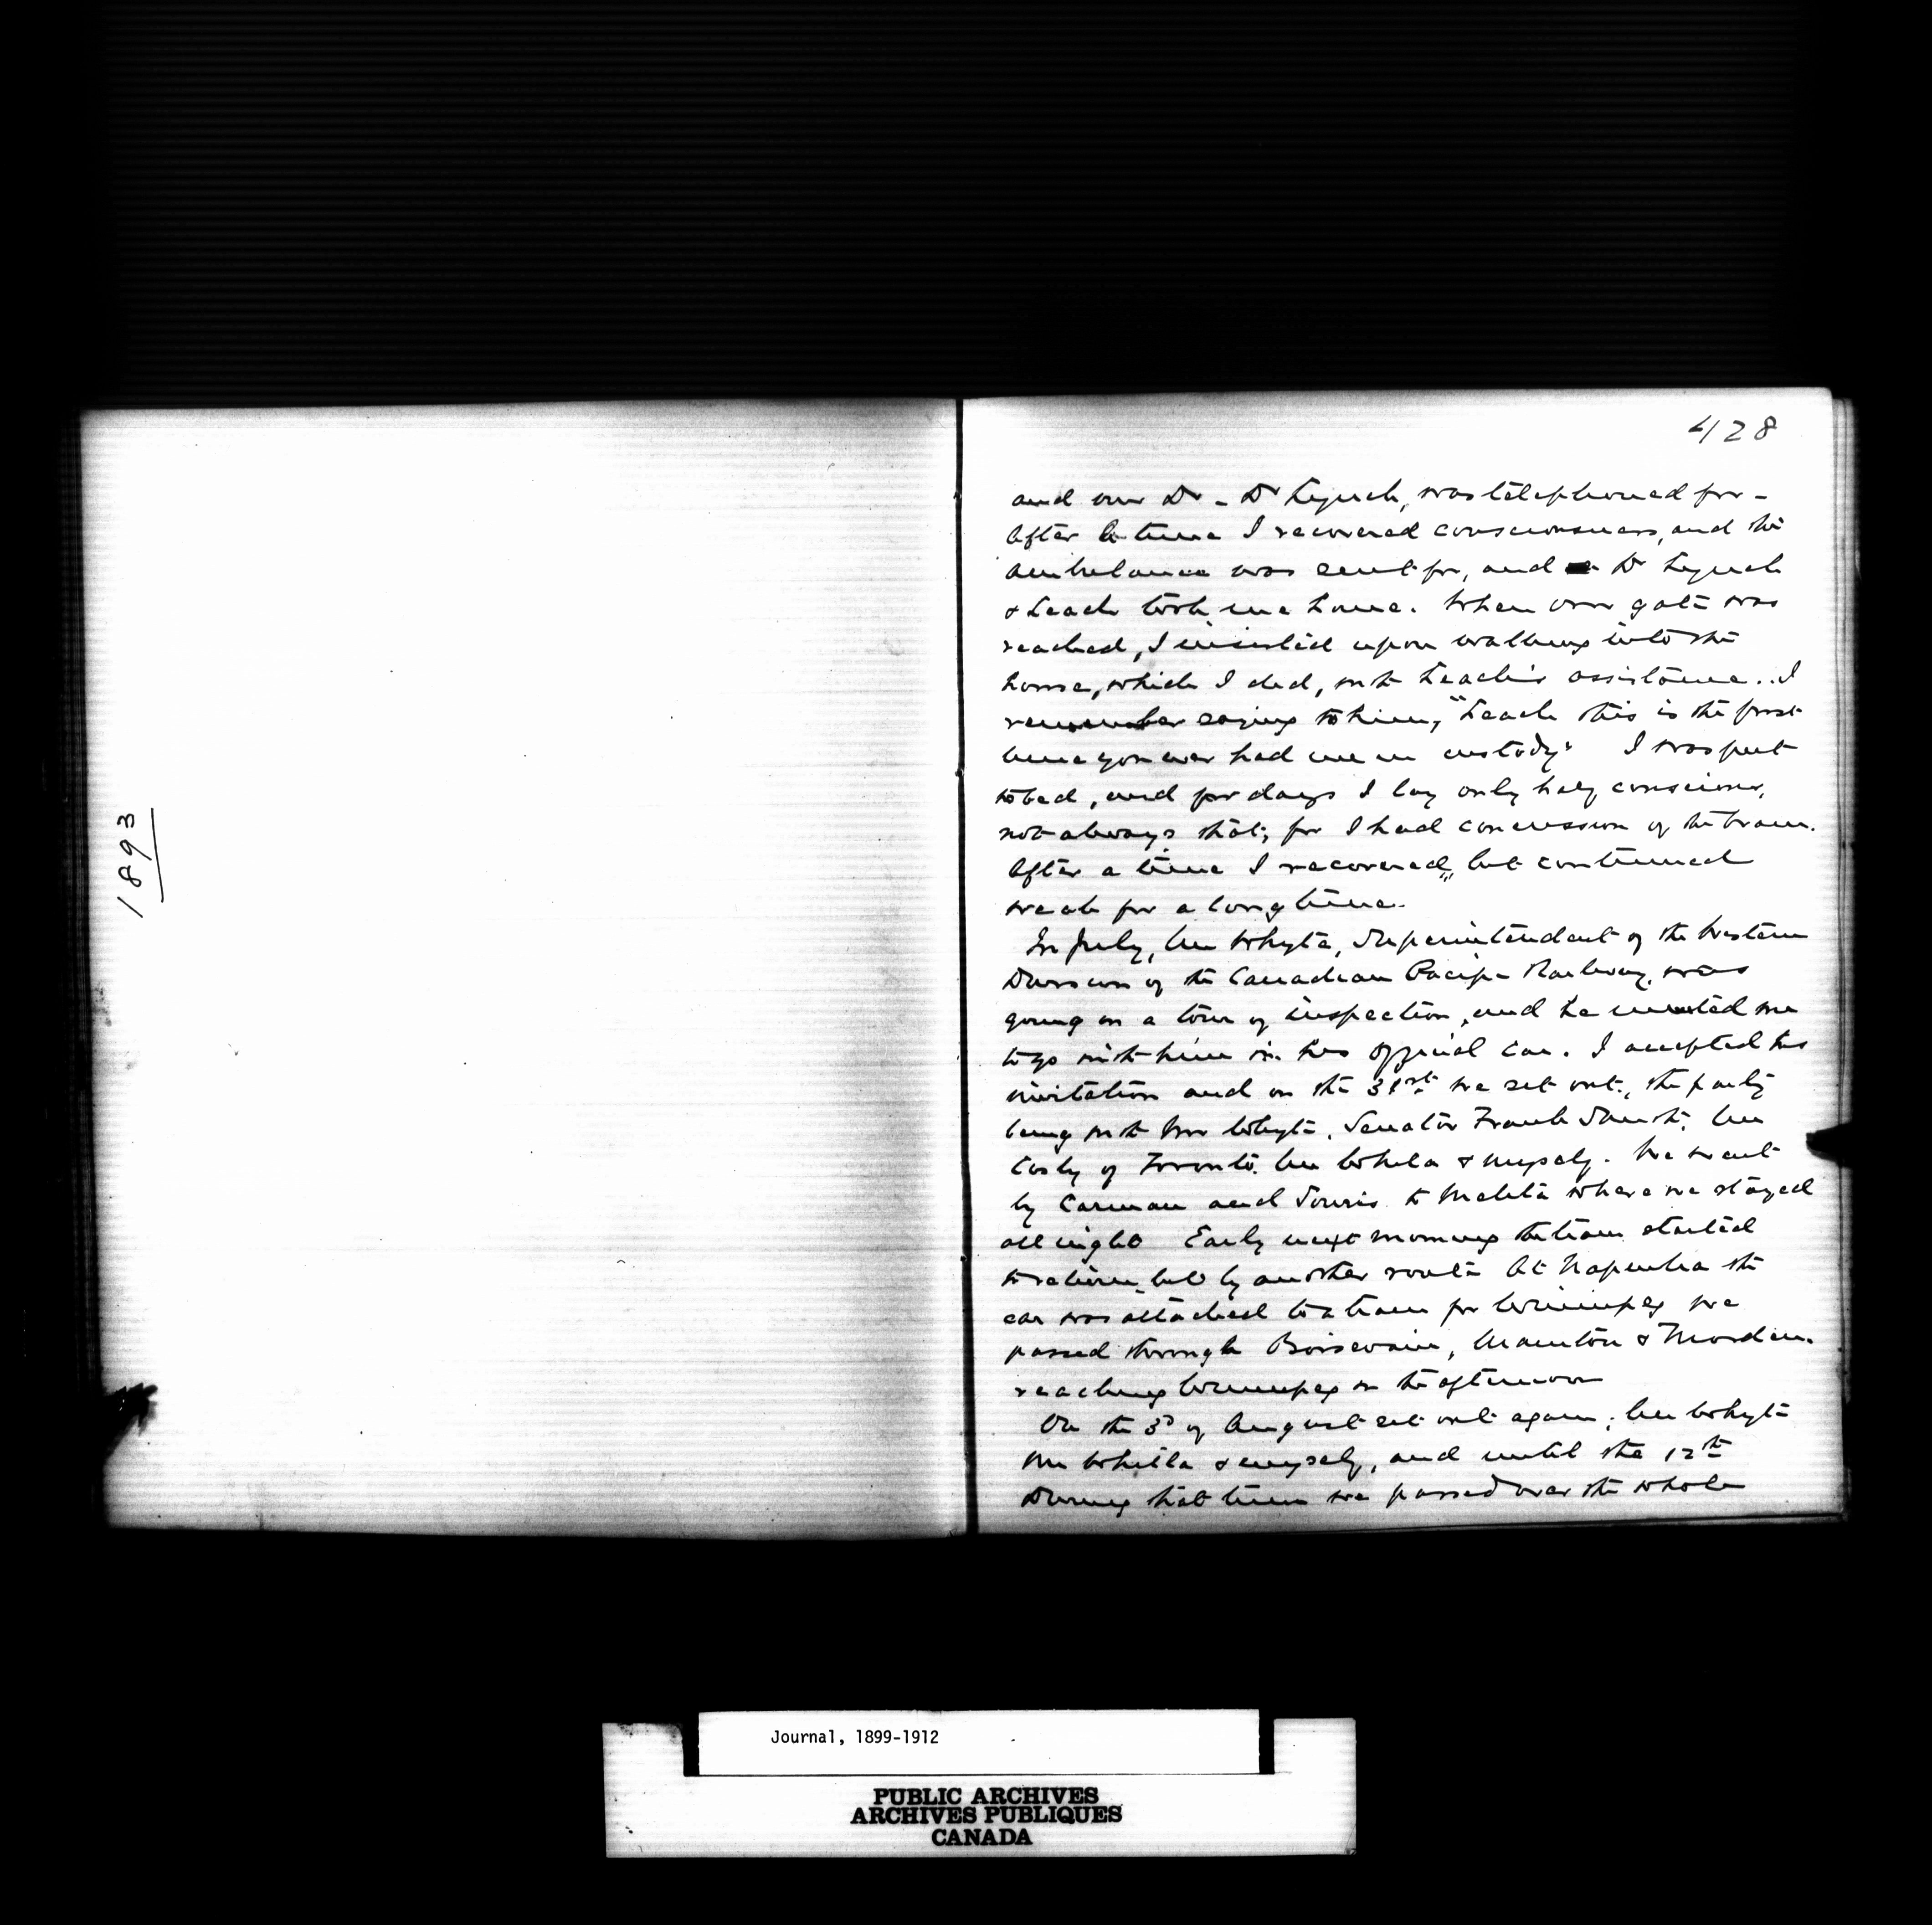 1893
428
and our Dr - Dr Lynch, was telephoned for -
After a time I recovered consciousness, and the
ambulance was sent for, and Dr Lynch
& Leach took me home. When our gate was
reached, I insisted upon walking into the
house, which I did, with Leach's assistance.. I
remember saying to him, "Leach this is the first
time you ever had me in custody" I was put
to bed, and for days I lay only half conscious,
not always that; for I had concussion of the brain.
After a time I recovered, but continued
weak for a long time.
In July, Mr Whyte, Superintendent of the Western
Division of the Canadian Pacific Railway, was
going on a tour of inspection, and he invited me
to go with him in his official car. I accepted his
invitation and on the 31st we set out, the party
being with Mr Whyte, Senator Frank Smith, Mr
of Toronto. Mr Whitla & myself. We went
by Carman and Souris to Melita where we stayed
all night Early next morning the train started
to return, but by another route At Napinka the
car was attached to a train for Winnipeg we
passed through Boissevain, Manitou & Morden.
reaching Winnipeg in the afternoon
On the 3d of August set out again; Mr Whyte
Mr Whitla & myself, and until the 12th
During that time we passed over the whole
Journal, 1899-1912
PUBLIC ARCHIVES
ARCHIVES PUBLIQUES
CANADA